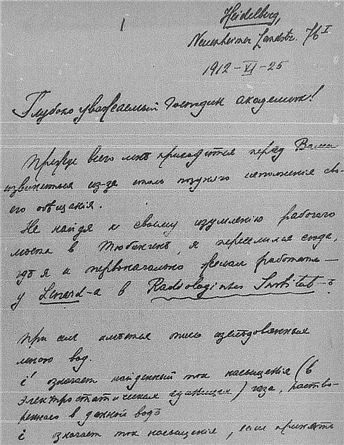 Heidelberg,
Neuenheimer Landstr. 76 I
1912-VI-25
Глубокоуважаемый Господин академик!
Прежде всего мне приходится перед Вами
извиняться из-за столь позднего исполнения сво-
его обещания.
Не найдя к своему изумлению рабочего
места в Тюбингене, я переселился сюда,
где я и первоначально решил работать —
у Lenard-а в Radiologisches Institut-ѣ
При сем имеется опись исследованных
мною вод.
i' означает найденный ток насыщения (в
электростатических единицах) газа, раство-
ренного в данной воде
i означает ток насыщения, если принять